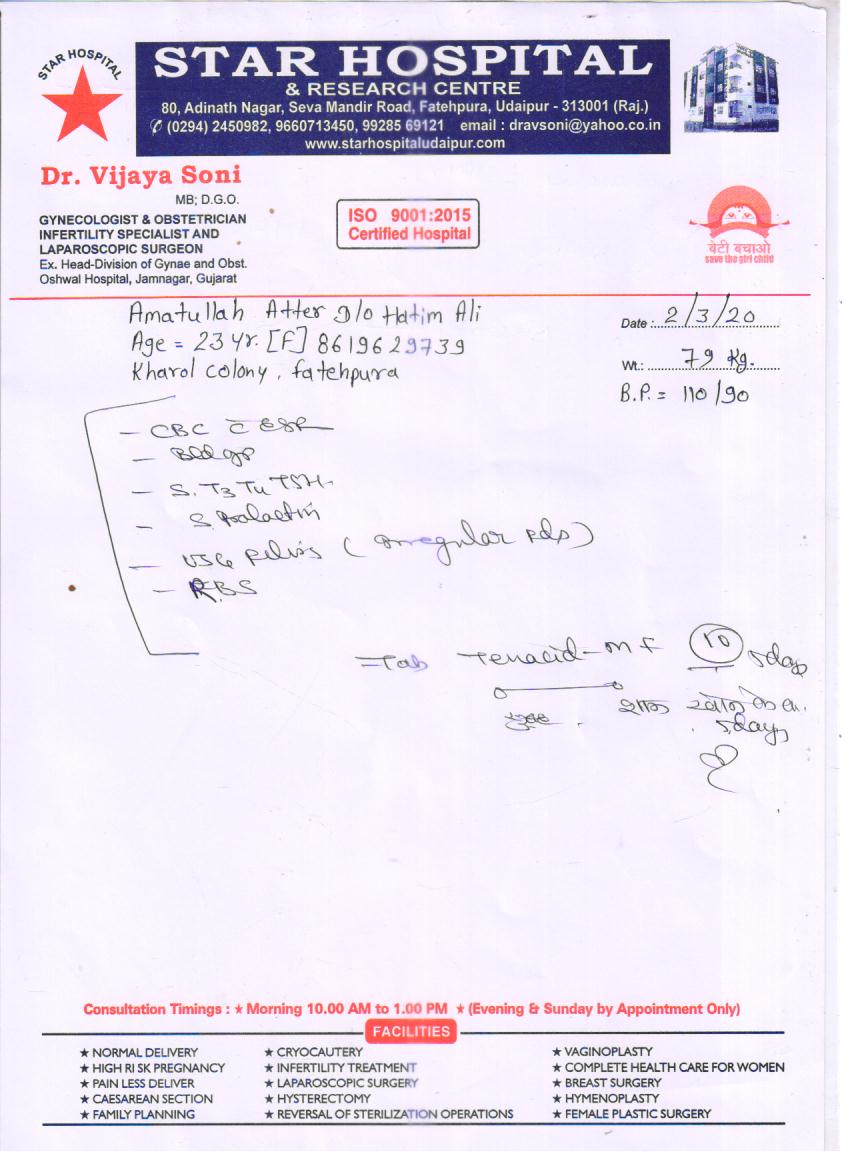 STAR HOSPITAL
STAR HOSPITAL
& RESEARCH CENTRE
80, Adinath Nagar, Seva Mandir Road, Fatehpura, Udaipur - 313001 (Raj.)
✆ (0294) 2450982, 9660713450, 99285 69121 email : dravsoni@yahoo.co.in
www.starhospitaludaipur.com
Dr. Vijaya Soni
MB; D.G.O.
GYNECOLOGIST & OBSTETRICIAN
INFERTILITY SPECIALIST AND
LAPAROSCOPIC SURGEON
Ex. Head-Division of Gynae and Obst.
Oshwal Hospital, Jamnagar, Gujarat
ISO 9001:2015
Certified Hospital
बेटी बचाओ
save the girl child
Amatullah Atter D/o Hatim Ali
Age = 23 yr. [F] 8619629739
Kharol colony, fatehpura
Date : 2/3/20
Wt.: 79 Kg.
B.P. = 110/90
- CBC c̄ ESR
- Bld gp
- S. T3 T4 TSH
- S. Prolactin
- USG pelvis (irregular pds)
- RBS
Tab 10 5days
5days
Consultation Timings : ★ Morning 10.00 AM to 1.00 PM ★ (Evening & Sunday by Appointment Only)
FACILITIES
★ NORMAL DELIVERY ★ CRYOCAUTERY ★ VAGINOPLASTY
★ HIGH RI SK PREGNANCY ★ INFERTILITY TREATMENT ★ COMPLETE HEALTH CARE FOR WOMEN
★ PAIN LESS DELIVER ★ LAPAROSCOPIC SURGERY ★ BREAST SURGERY
★ CAESAREAN SECTION ★ HYSTERECTOMY ★ HYMENOPLASTY
★ FAMILY PLANNING ★ REVERSAL OF STERILIZATION OPERATIONS ★ FEMALE PLASTIC SURGERY